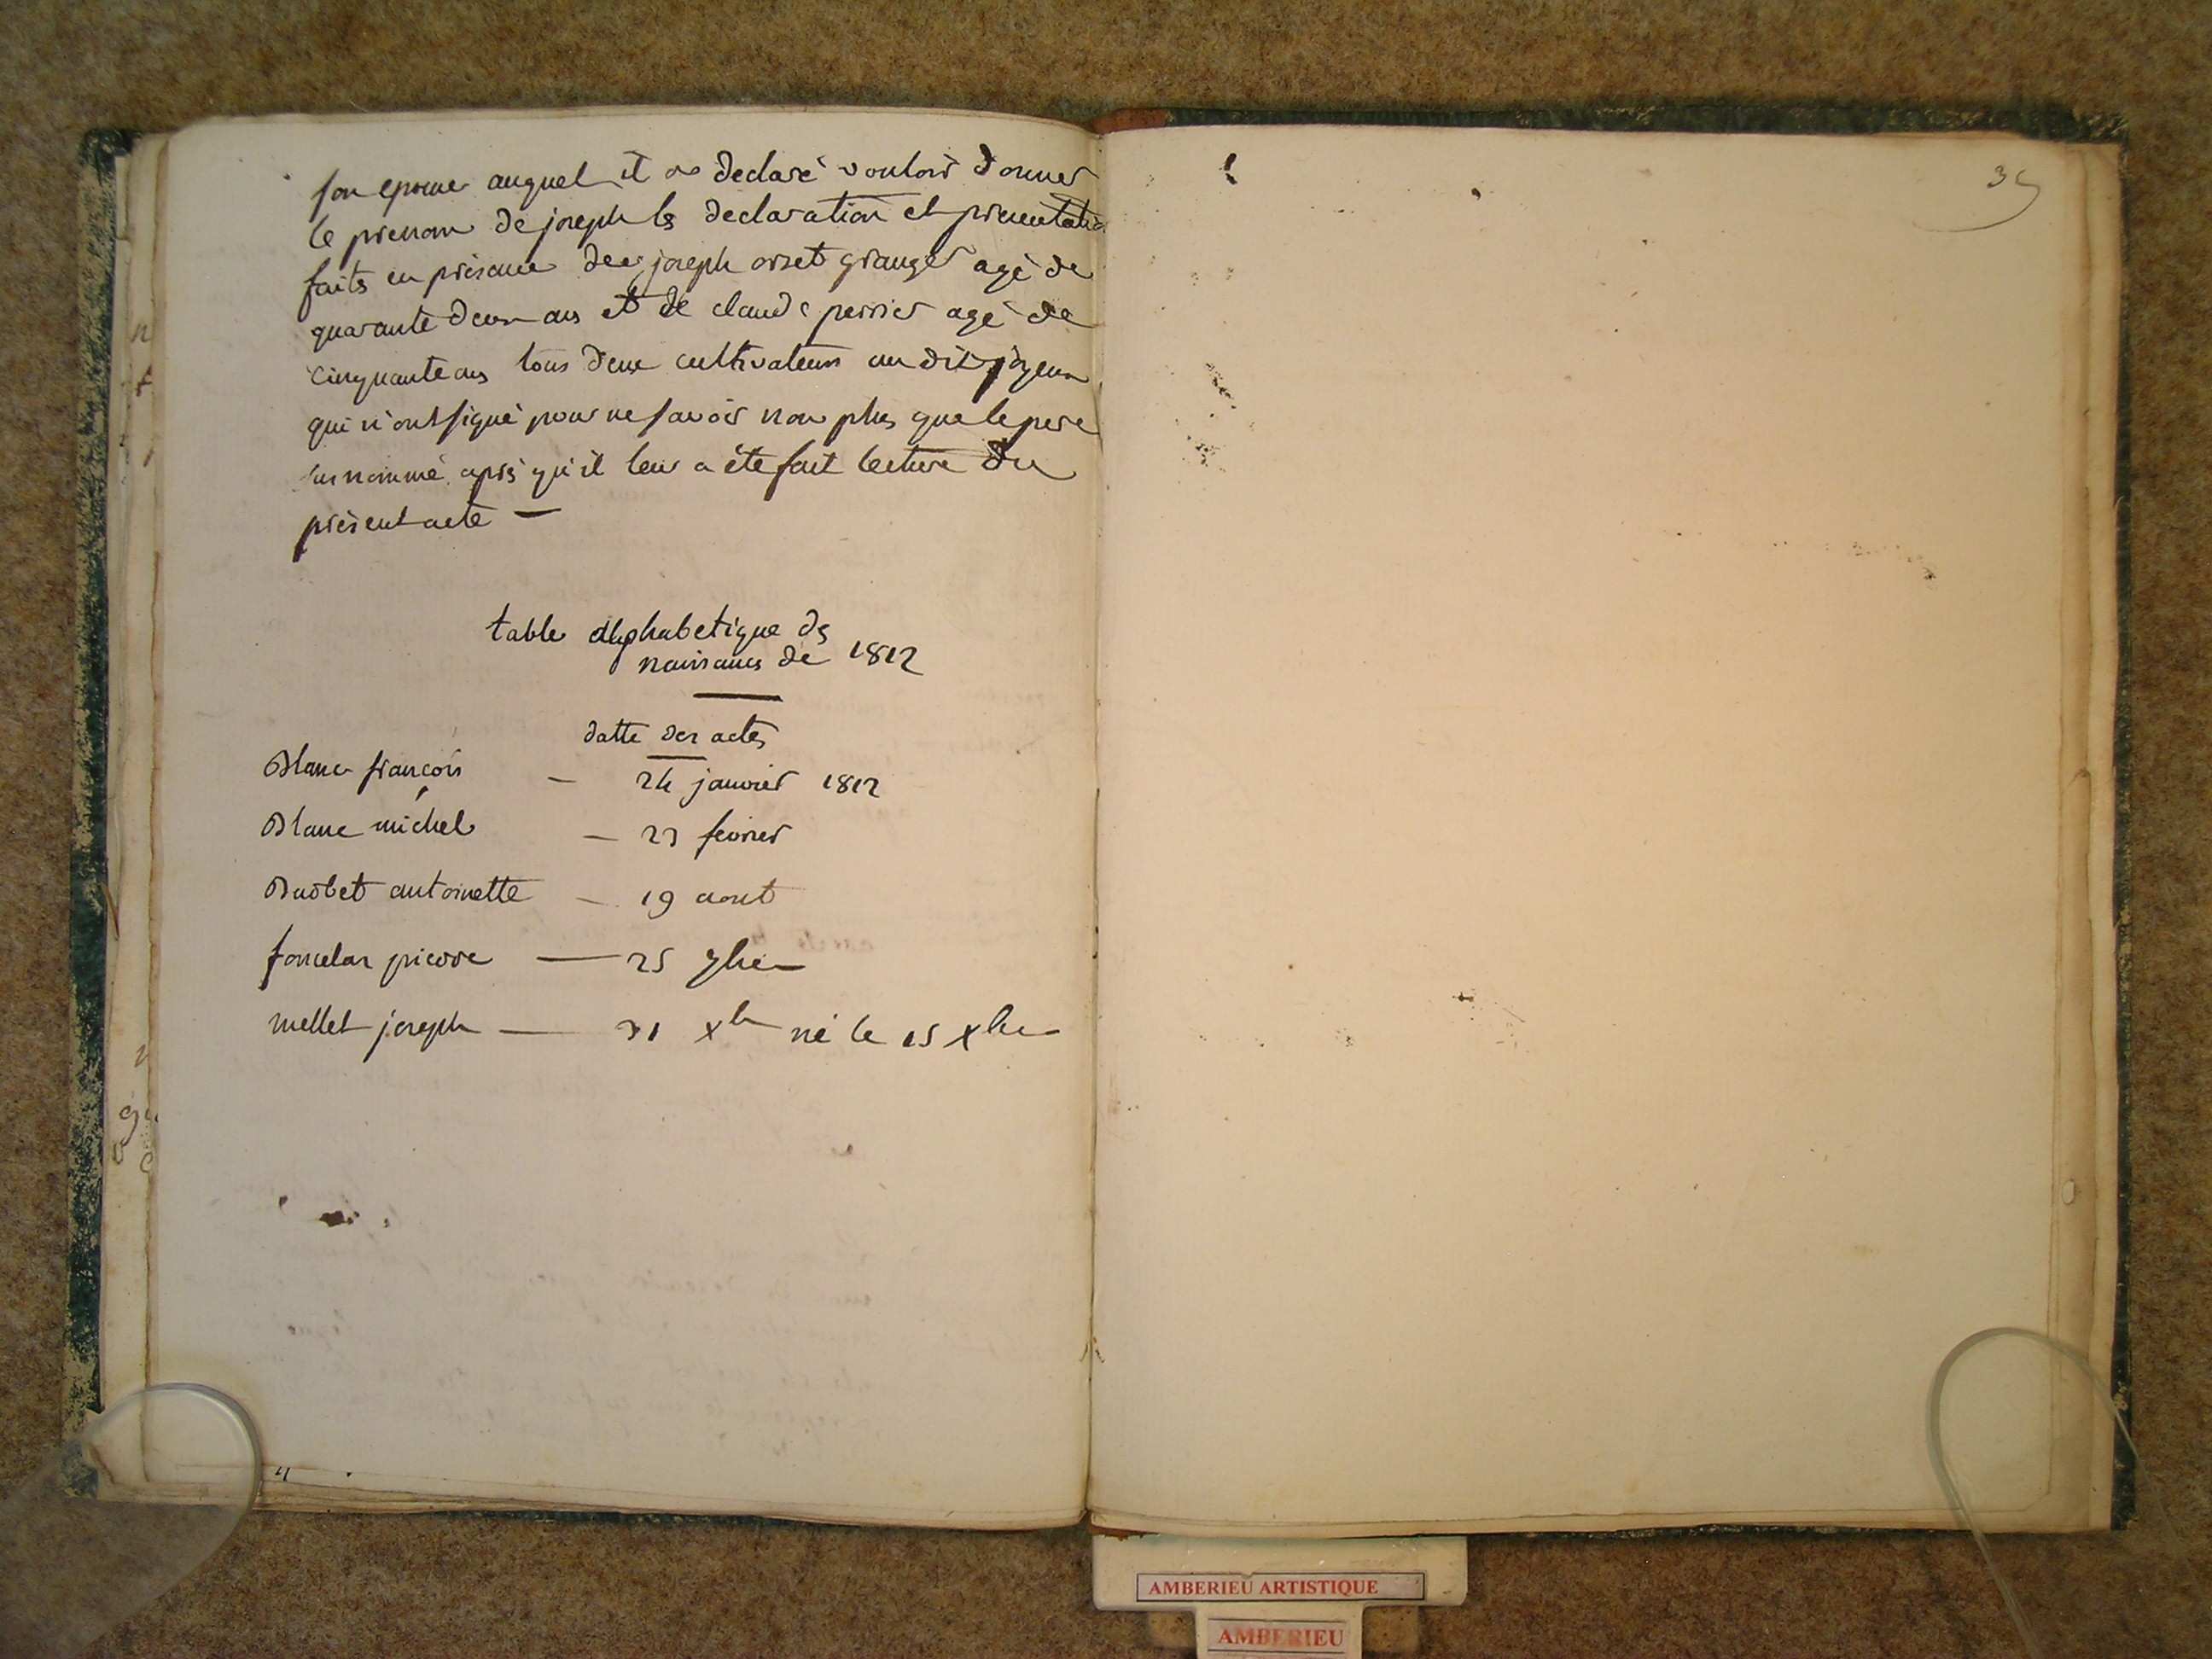 son epouse auquel il a declaré vouloir donner
le prenom de joseph les declaration et presentation
faits en présence de joseph orset granger agé de
quarante deux ans et de claude perrier agé de
cinquante ans tous deux cultivateurs au dit joyeux
qui n'ont signé pour ne savoir non plus que le pere
susnommé après qu'il leur a été fait lecture du
présent acte —
table alphabetique des
naissances de 1812
datte des actes
Blanc françois — 24 janvier 1812
Blanc michel — 23 fevrier
antoinette — 19 aout
pierre — 25
mellet joseph — 31 xbre né le 15 xbre
35
AMBERIEU ARTISTIQUE
AMBERIEU